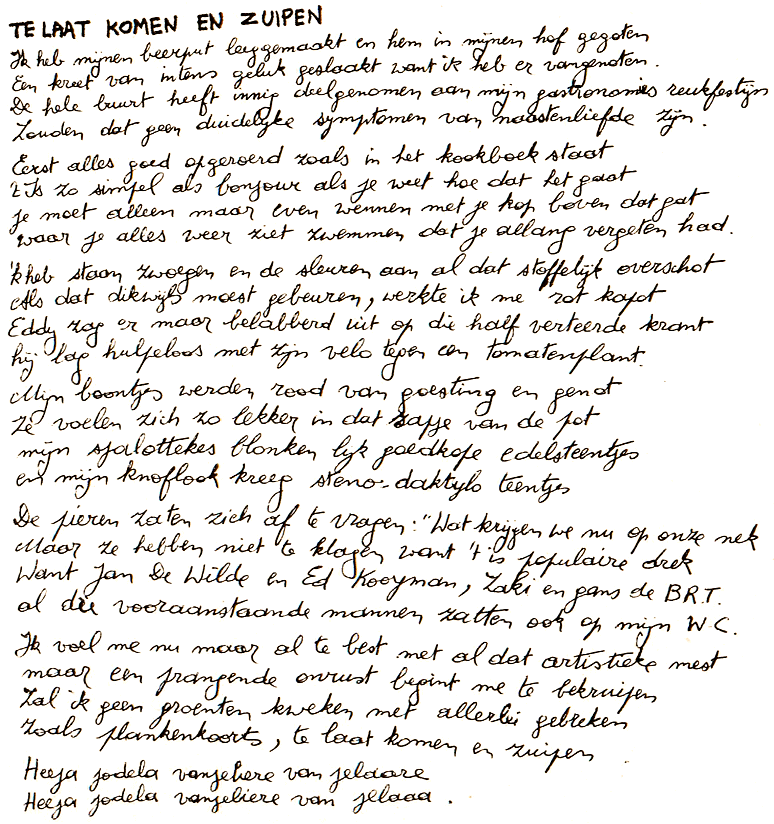 TE LAAT KOMEN EN ZUIPEN
Ik heb mijnen beerput leeggemaakt en hem in mijnen hof gegoten
Een kreet van intens geluk geslaakt want ik heb er van genoten.
De hele buurt heeft innig deelgenomen aan mijn gastronomies reukfestijn
Zouden dat geen duidelijke symptomen van naastenliefde zijn.
Eerst alles goed opgeroerd zoals in het kookboek staat
't Is zo simpel als bonjour als je weet hoe dat het gaat
je moet alleen maar even wennen met je kop boven dat gat
waar je alles weer ziet zwemmen dat je allang vergeten had.
'k heb staan zwoegen en de sleuren aan al dat stoffelijk overschot
Als dat dikwijls moest gebeuren, werkte ik me rot kapot
Eddy zag er maar belabberd uit op die half verteerde krant
hij lag hulpeloos met zijn velo tegen een tomatenplant.
Mijn boontjes werden rood van goesting en genot
ze voelen zich zo lekker in dat sapje van de pot
mijn sjalottekes blonken lijk goedkope edelsteentjes
en mijn knoflook kreeg steno-daktylo teentjes
De pieren zaten zich af te vragen: "Wat krijgen we nu op onze nek
Maar ze hebben niet te klagen want 't is populaire drek
Want Jan De Wilde en Ed Kooyman, Zaki en gans de B.R.T.
al die vooraanstaande mannen zatten ook op mijn W.C.
Ik voel me nu maar al te best met al dat artistieke mest
maar een prangende onrust begint me te bekruipen
Zal ik geen groenten kweken met allerlei gebreken
zoals plankenkoorts, te laat komen en zuipen
Heeja jodela vanjeliere van jelaare
Heeja jodela vanjeliere van jelaaa.